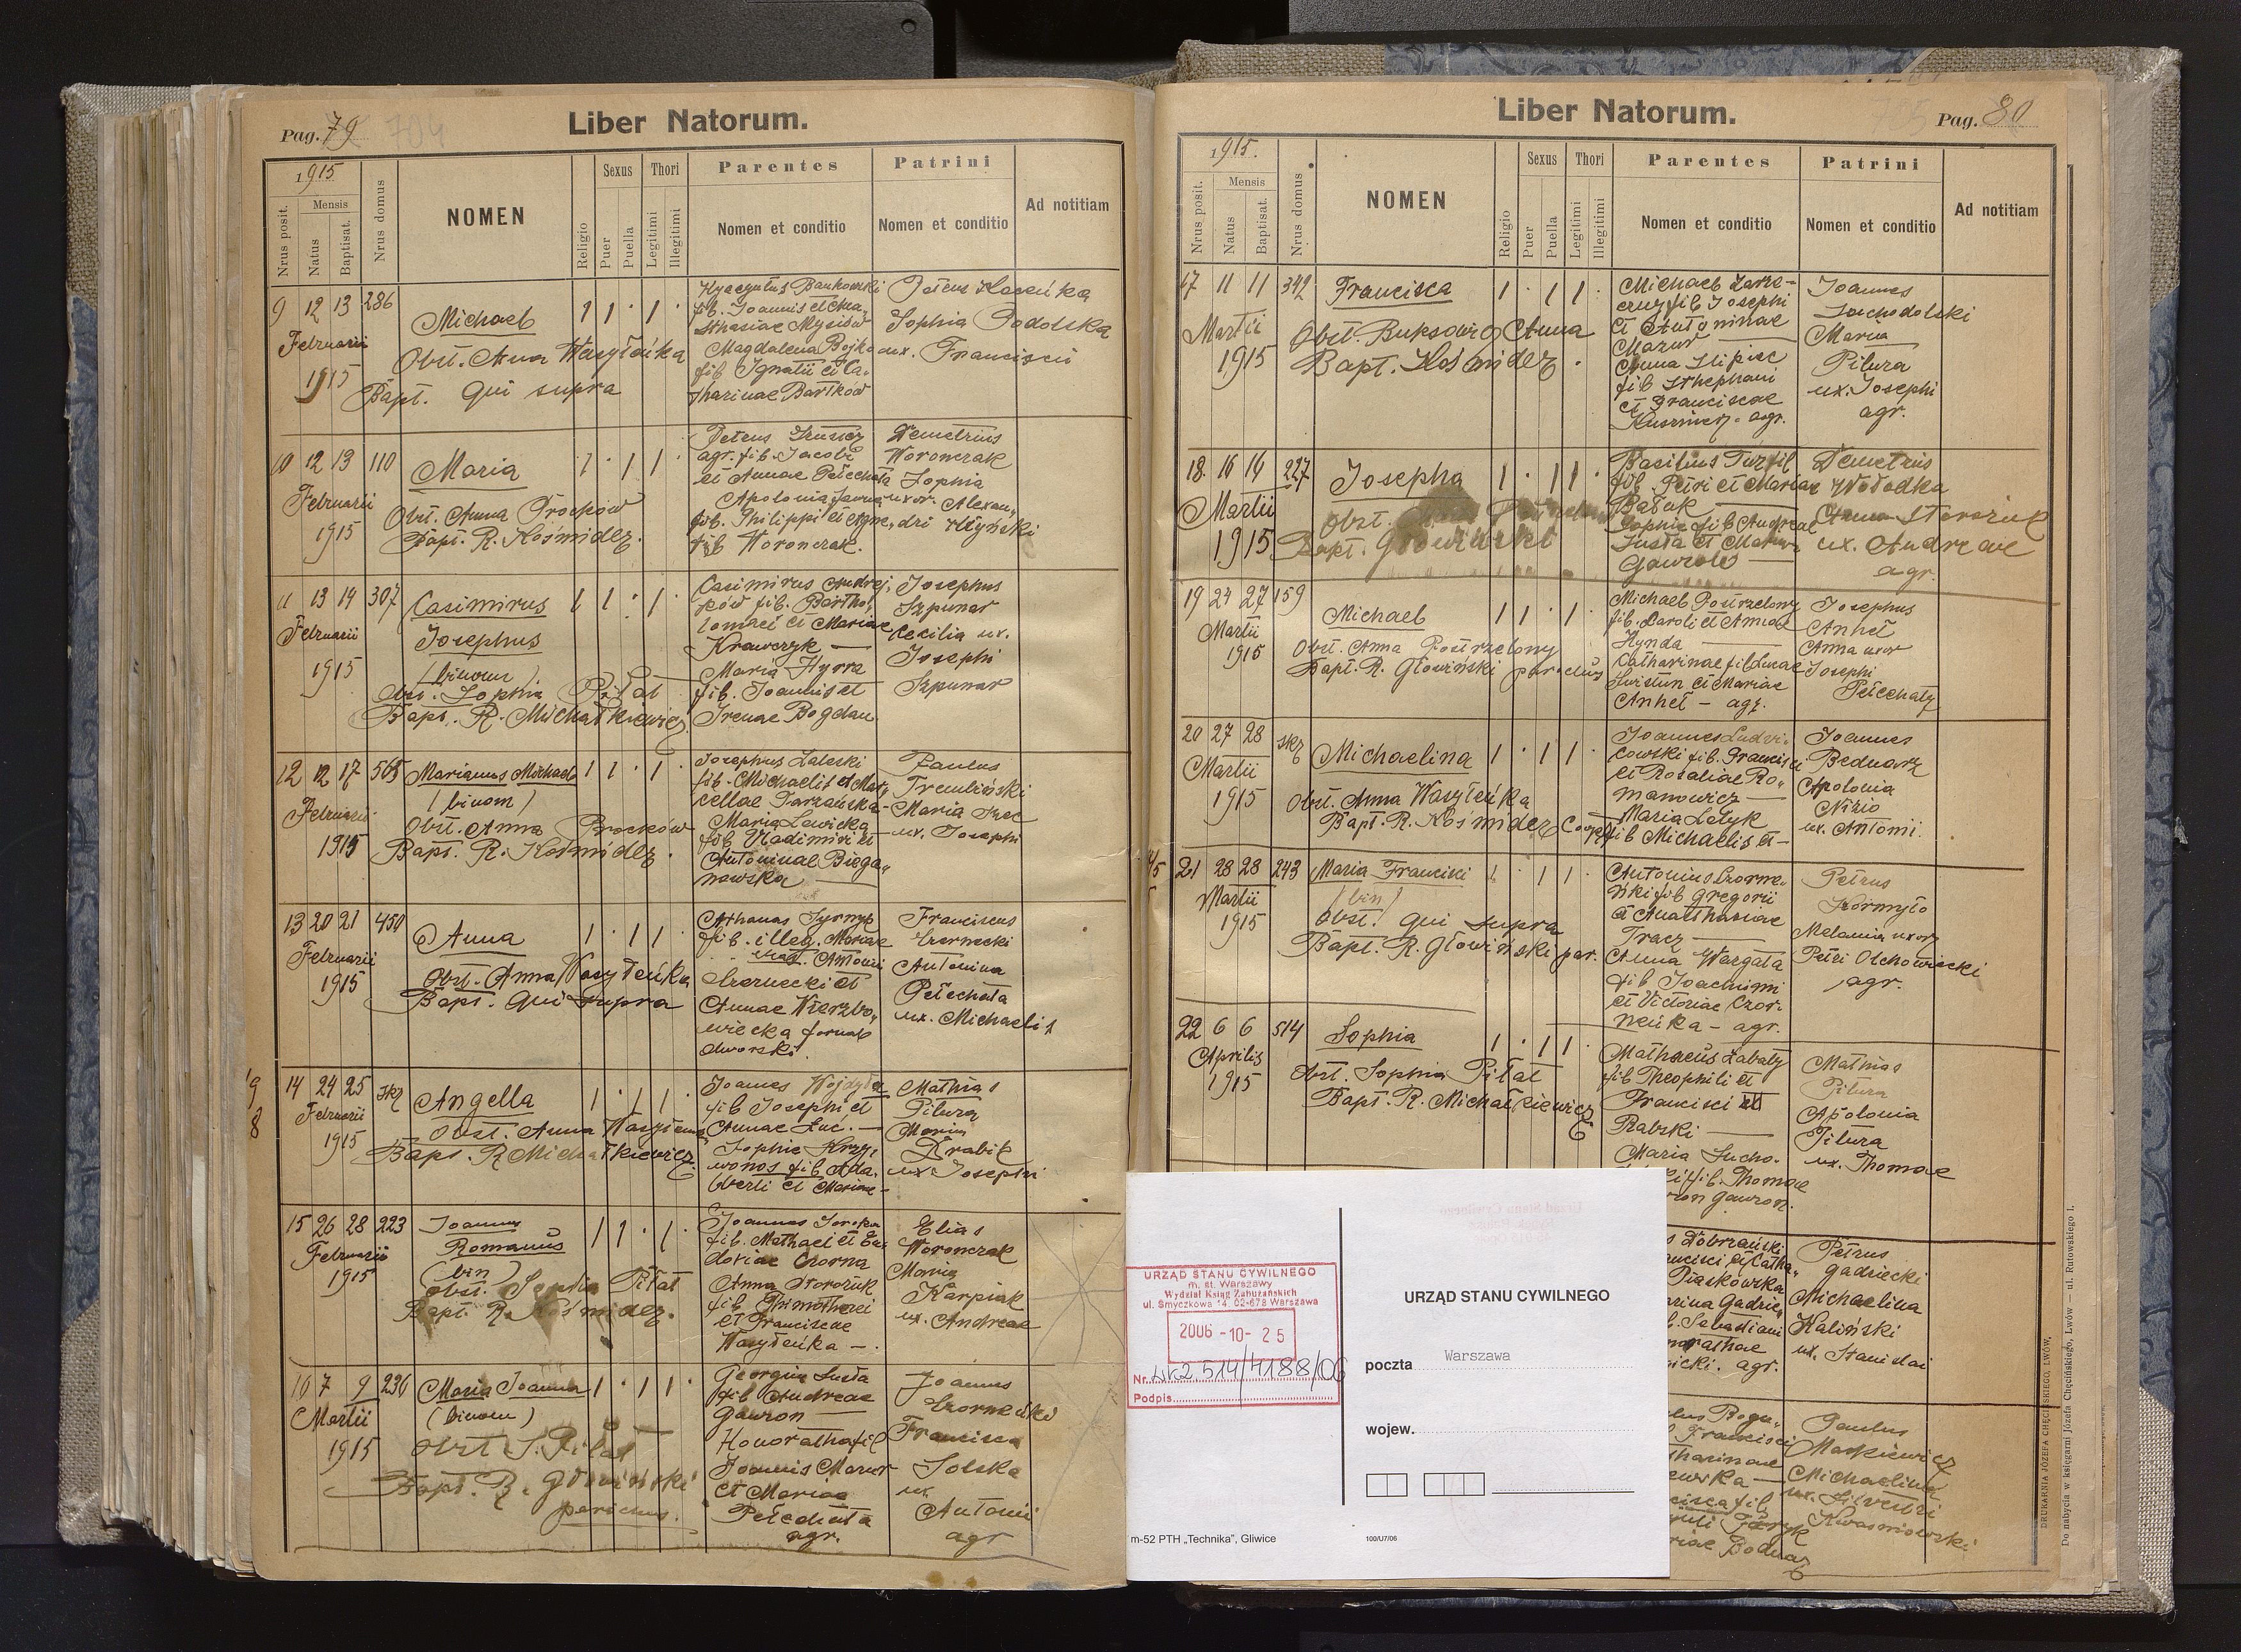 Pag. 79
704
Liber Natorum.
1915
Nrus posit.
Mensis
Natus
Baptisat.
Nrus domus
NOMEN
Religio
Sexus
Puer
Puella
Thori
Legitimi
Illegitimi
Parentes
Nomen et conditio
Patrini
Nomen et conditio
Ad notitiam
9 12 13 286
Februarii
1915
Michael
Obst. Anna Wasyleńka
Bapt. qui supra
1 1 · 1 ·
fil. Joannis et
Magdalena Bojko
fil Ignatii et Ca-
tharinae Bartków
Petrus
Sophia Podolska
ux. Francisci
10 12 13 110
Februarii
1915
Maria
Obst. Anna Procków
Bapt. R. Kośmider.
1 · 1 1 ·
Petrus
agr. fil. Jacobi
et Annae Pełechata
Apolonia
fil. Philippi et Agne-
Woronczak.
Demetrius
Woronczak
Sophia
uxor. Alexan-
dri
11 13 14 307
Februarii
1915
Casimirus
Josephus
(binom)
Obst. Sophia Piłat
Bapt. R. Michałkiewicz
1 1 · 1 ·
Casimirus Andrej-
ków fil. Bartho-
lomaei et Mariae
Krawczyk —
Maria Hyrra
fil. Joannis et
Irenae Bogdan
Josephus
Szpunar
Cecilia ux.
Josephi
Szpunar
12 12 17 565
Februarii
1915
Marianus Michael
(binom)
Obst. Anna Procków
Bapt. R. Kośmider.
1 1 · 1 ·
Josephus Zaleski
fil. Michaelis et Mar-
cellae Darzańska-
Maria Lewicka
fil Vladimiri et
Antoninae Biega-
nowska —
Paulus
Trembiński
Maria
ux. Josephi
13 20 21 450
Februarii
1915
Anna
Obst. Anna Wasyleńka
Bapt. qui supra
1 · 1 1 ·
fil. illeg. Mariae
Antonii
Czernecki et
Annae Wierzbo-
wiecka fornal
dworski.
Franciscus
Czernecki
Antonina
Pełechata
ux. Michaelis
14 24 25
Februarii
1915
Angella
Obst. Anna
Bapt. R. Michałkiewicz
1 · 1 1 ·
Joannes Wojdyła
fil Josephi et
Annae Łuc. —
Sophie Krzy-
wonos fil Ada-
lberti et Mariae —
Mathias
Pitura
Maria
Drabik
ux Josephi
15 26 28 223
Februarii
1915
Joannes
Romanus
(bin)
Obst. Sophia Piłat
Bapt. R. Kośmider.
1 1 · 1 ·
Joannes Soroka
fil. Mathaei et Eu-
doxiae Czorna
Anna Storożuk
fil. Thimothaei
et Franciscae
Wasyleńka —.
Elias
Woronczak
Maria
Karpiak
ux. Andreae
16 7 9 236
Martii
1915
Maria Joanna
(binom)
Obst S. Piłat
Bapt. R. Głowiński
parochus.
1 · 1 1 ·
Georgius Susta
fil Andreae
Gawron —
Honoratha fil
Joannis Mazur
et Mariae
Pełechata
agr.
Joannes
Czorneńki
Francisca
Solska
ux.
Antonii
agr
Liber Natorum.
Pag. 80
705
1915.
Nrus posit.
Mensis
Natus
Baptisat.
Nrus domus
NOMEN
Religio
Sexus
Puer
Puella
Thori
Legitimi
Illegitimi
Parentes
Nomen et conditio
Patrini
Nomen et conditio
Ad notitiam
17 11 11 342
Martii
1915
Francisca
Obst. Buksowicz Anna
Bapt. Kośmider.
1 · 1 1
fil Josephi
et Antoninae
Mazur —
Anna Slipiec
fil Sthephani
et Franciscae
Kusznierz. agr.
Joannes
Suchodolski
Maria
Pitura
ux. Josephi
agr.
18. 16 16 227
Martii
1915
Josepha
Obst.
Bapt. Głowiński
1 · 1 1 ·
Basilius
fil. Petri et Mariae
Bałuk —
Sophie fil Andreae
Susta et Mariae
Gawron —
Demetrius
Wołodka
Anna Storożuk
ux. Andreae
agr.
19 24 27 159
Martii
1915
Michael
Obst. Anna Postrzelony
Bapt. R. Głowiński parochus
1 1 · 1 ·
Michael Postrzelony
fil. Caroli et Annae
Hynda —
Catharinae fil Lucae
Swistun et Mariae
Anheł — agr.
Josephus
Anheł
Anna uxor
Josephi
Pełechaty
20 27 28
Martii
1915
Michaelina
Obst. Anna Wasyleńka
Bapt. R. Kośmider Coop
1 · 1 1
Joannes Ludvi-
cowski fil. Francisci
et Rosaliae Ro-
manowicz —
Maria Letyk
fil Michaelis et —
Joannes
Bednarz
Apolonia
Nizio
ux. Antonii.
21 28 28 243
Martii
1915
Maria Francisci
(bin)
Obst. qui supra
Bapt. R. Głowiński par.
1 · 1 1 ·
Antonius Czorne-
ńki fil Gregorii
et Anasthasiae
Tracz —
Anna Wargata
fil Joachimi
et Victoriae Czor-
neńka — agr.
Petrus
Kormyło
Melania uxor
Petri Olchowiecki
agr.
22 6 6 514
Aprilis
1915
Sophia
Obst. Sophia Piłat
Bapt. R. Michałkiewicz
1 · 1 1
Mathaeus Zabaty
fil Theophili et
Francisci
Rabski —
Maria Sucho-
fil. Thomae
Gawron.
Mathias
Pitura
Apolonia
Pitura
ux. Thomae
Dobrzański
Piaskowska
Sebastiani
agr.
Petrus
Gadziecki
Michaelina
Kaliński
ux. Stanislai
Paulus
Maskiewicz
Michaelina
ux. Silvestri
Kwasniowski
URZĄD STANU CYWILNEGO
m. st. Warszawy
Wydział Ksiąg Zabużańskich
ul. Smyczkowa 14, 02-678 Warszawa
2006 -10- 25
Nr.
514/4188/06
Podpis
URZĄD STANU CYWILNEGO
poczta Warszawa
wojew.
m-52 PTH „Technika”, Gliwice
100/U7/06
DRUKARNIA JÓZEFA CHĘCIŃSKIEGO, LWÓW,
Do nabycia w księgarni Józefa Chęcińskiego, Lwów — ul. Rutowskiego 1.